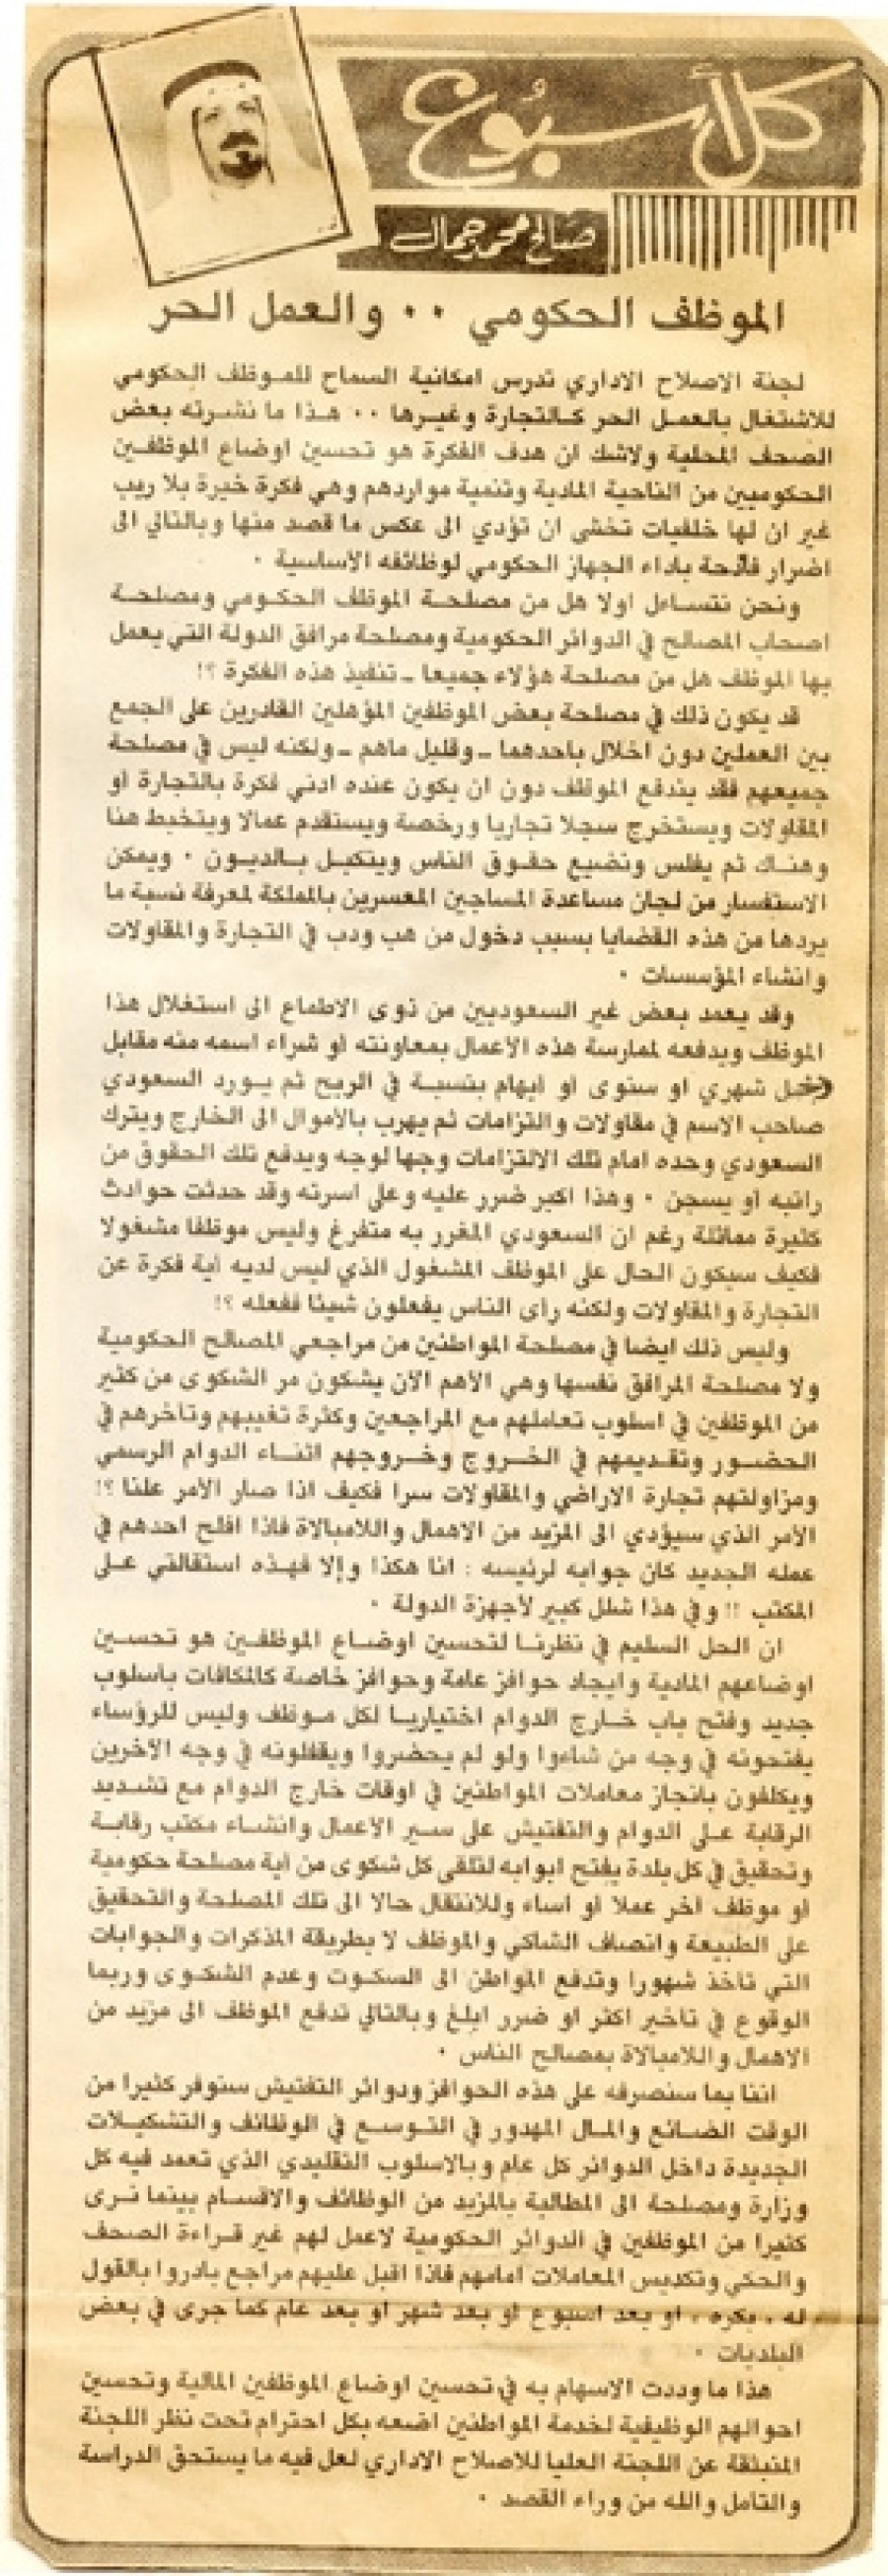 كل أسبوع
صالح محمد جمال
الموظف الحكومي ٠٠ والعمل الحر
لجنة الاصلاح الاداري تدرس امكانية السماح للموظف الحكومي
للاشتغال بالعمل الحر كالتجارة وغيرها ٠٠ هذا ما نشرته بعض
الصحف المحلية ولاشك ان هدف الفكرة هو تحسين اوضاع الموظفين
الحكوميين من الناحية المادية وتنمية مواردهم وهي فكرة خيرة بلا ريب
غير ان لها خلفيات تخشى ان تؤدي الى عكس ما قصد منها وبالتالي الى
اضرار فادحة باداء الجهاز الحكومي لوظائفه الأساسية ٠
ونحن نتساءل اولا هل من مصلحة الموظف الحكومي ومصلحة
اصحاب المصالح في الدوائر الحكومية ومصلحة مرافق الدولة التي يعمل
بها الموظف هل من مصلحة هؤلاء جميعا ـ تنفيذ هذه الفكرة ؟!
قد يكون ذلك في مصلحة بعض الموظفين المؤهلين القادرين على الجمع
بين العملين دون اخلال باحدهما ـ وقليل ماهم ـ ولكنه ليس في مصلحة
جميعهم فقد يندفع الموظف دون ان يكون عنده ادنى فكرة بالتجارة او
المقاولات ويستخرج سجلا تجاريا ورخصة ويستقدم عمالا ويتخبط هنا
وهناك ثم يفلس وتضيع حقوق الناس ويتكبل بالديون ٠ ويمكن
الاستفسار من لجان مساعدة المساجين المعسرين بالمملكة لمعرفة نسبة ما
يردها من هذه القضايا بسبب دخول من هب ودب في التجارة والمقاولات
وانشاء المؤسسات ٠
وقد يعمد بعض غير السعوديين من ذوى الاطماع الى استغلال هذا
الموظف ويدفعه لممارسة هذه الأعمال بمعاونته او شراء اسمه منه مقابل
دخل شهري او سنوى او ايهام بنسبة في الربح ثم يورد السعودي
صاحب الاسم في مقاولات والتزامات ثم يهرب بالأموال الى الخارج ويترك
السعودي وحده امام تلك الالتزامات وجها لوجه ويدفع تلك الحقوق من
راتبه او يسجن ٠ وهذا اكبر ضرر عليه وعلى اسرته وقد حدثت حوادث
كثيرة مماثلة رغم ان السعودي المغرر به متفرغ وليس موظفا مشغولا
فكيف سيكون الحال على الموظف المشغول الذي ليس لديه أية فكرة عن
التجارة والمقاولات ولكنه رأى الناس يفعلون شيئا ففعله ؟!
وليس ذلك ايضا في مصلحة المواطنين من مراجعي المصالح الحكومية
ولا مصلحة المرافق نفسها وهي الأهم الآن يشكون مر الشكوى من كثير
من الموظفين في اسلوب تعاملهم مع المراجعين وكثرة تغيبهم وتأخرهم في
الحضور وتقديمهم في الخروج وخروجهم اثناء الدوام الرسمي
ومزاولتهم تجارة الاراضي والمقاولات سرا فكيف اذا صار الأمر علنا ؟!
الأمر الذي سيؤدي الى المزيد من الاهمال واللامبالاة فاذا افلح احدهم في
عمله الجديد كان جوابه لرئيسه : انا هكذا وإلا فهذه استقالتي على
المكتب !! وفي هذا شلل كبير لأجهزة الدولة ٠
ان الحل السليم في نظرنا لتحسين اوضاع الموظفين هو تحسين
اوضاعهم المادية وايجاد حوافز عامة وحوافز خاصة كالمكافآت بأسلوب
جديد وفتح باب خارج الدوام اختياريا لكل موظف وليس للرؤساء
يفتحونه في وجه من شاءوا ولو لم يحضروا ويقفلونه في وجه الآخرين
ويكلفون بانجاز معاملات المواطنين في اوقات خارج الدوام مع تشديد
الرقابة على الدوام والتفتيش على سير الأعمال وانشاء مكتب رقابة
وتحقيق في كل بلدة يفتح ابوابه لتلقى كل شكوى من أية مصلحة حكومية
او موظف اخر عملا او اساء وللانتقال حالا الى تلك المصلحة والتحقيق
على الطبيعة وانصاف الشاكي والموظف لا بطريقة المذكرات والجوابات
التي تأخذ شهورا وتدفع المواطن الى السكوت وعدم الشكوى وربما
الوقوع في تأخير اكثر او ضرر ابلغ وبالتالي تدفع الموظف الى مزيد من
الاهمال واللامبالاة بمصالح الناس ٠
اننا بما سنصرفه على هذه الحوافز ودوائر التفتيش سنوفر كثيرا من
الوقت الضائع والمال المهدور في التوسع في الوظائف والتشكيلات
الجديدة داخل الدوائر كل عام وبالاسلوب التقليدي الذي تعمد فيه كل
وزارة ومصلحة الى المطالبة بالمزيد من الوظائف والاقسام بينما نرى
كثيرا من الموظفين في الدوائر الحكومية لاعمل لهم غير قراءة الصحف
والحكي وتكديس المعاملات امامهم فاذا اقبل عليهم مراجع بادروا بالقول
له ، بكره ، او بعد اسبوع او بعد شهر او بعد عام كما جرى في بعض
البلديات ٠
هذا ما وددت الاسهام به في تحسين اوضاع الموظفين المالية وتحسين
احوالهم الوظيفية لخدمة المواطنين اضعه بكل احترام تحت نظر اللجنة
المنبثقة عن اللجنة العليا للاصلاح الاداري لعل فيه ما يستحق الدراسة
والتأمل والله من وراء القصد ٠